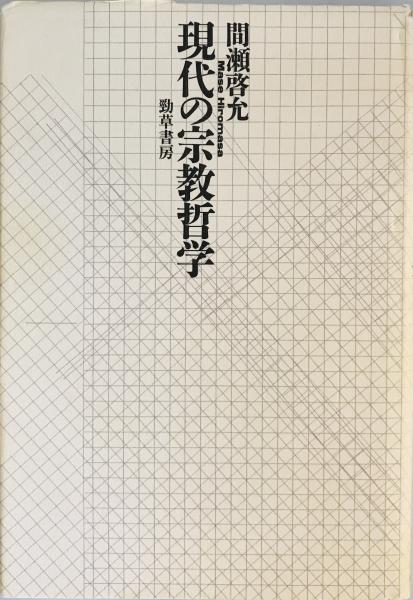 間瀬啓允
Mase Hiromasa
現代の宗教哲学
勁草書房